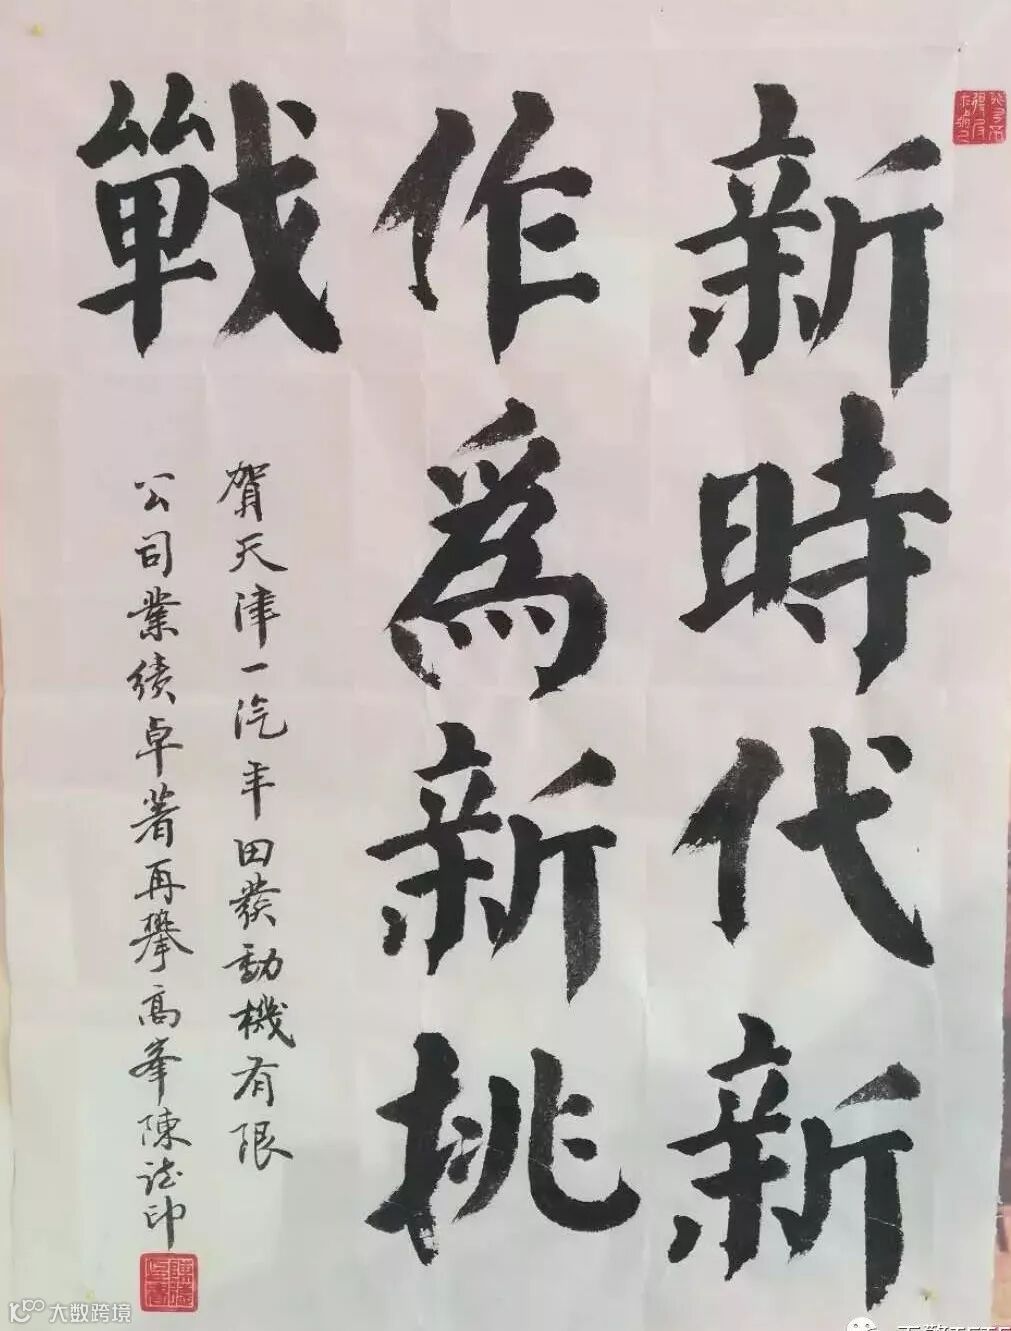 新時代新
作為新挑
戰
賀天津一汽丰田發動機有限
公司業績卓著再攀高峯陳
印
大数跨境